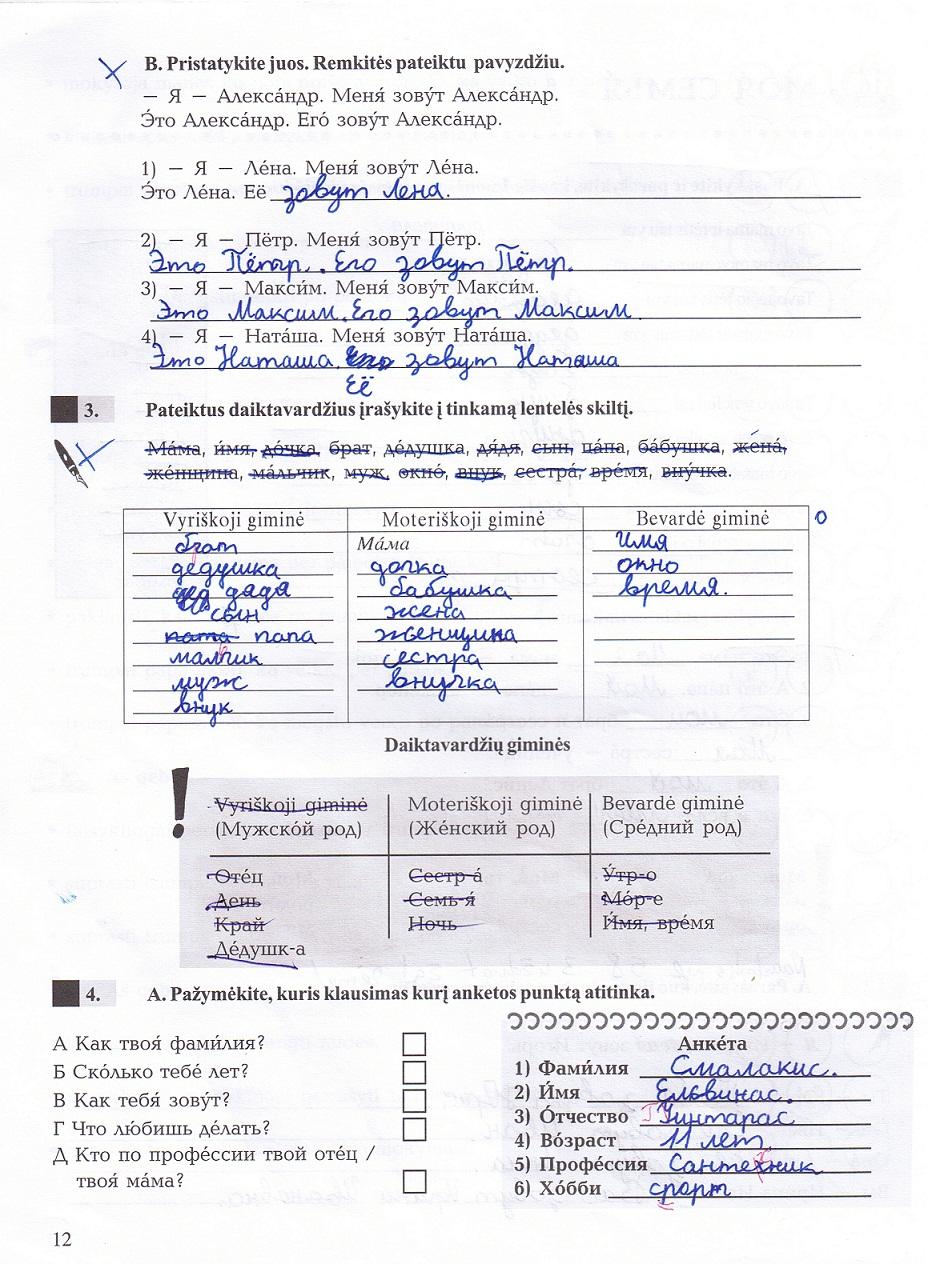 B. Pristatykite juos. Remkitės pateiktu pavyzdžiu.
– Я – Алексáндр. Меня́ зову́т Алексáндр.
Э́то Алексáндр. Егó зову́т Алексáндр.
1) – Я – Лéна. Меня́ зову́т Лéна.
Э́то Лéна. Её зовут Лена.
2) – Я – Пётр. Меня́ зову́т Пётр.
Это Пётр. Его зовут Пётр.
3) – Я – Макси́м. Меня́ зову́т Макси́м.
Это Максим. Его зовут Максим.
4) – Я – Натáша. Меня́ зову́т Натáша.
Это Наташа. Его зовут Наташа
Её
3. Pateiktus daiktavardžius įrašykite į tinkamą lentelės skiltį.
Мáма, и́мя, дóчка, брат, дéдушка, дя́дя, сын, пáпа, бáбушка, женá,
жéнщина, мáльчик, муж, окнó, внук, сестрá, врéмя, вну́чка.
Vyriškoji giminė Moteriškoji giminė Bevardė giminė 0
брат Мáма имя
дедушка дочка окно
дядя бабушка время.
сын жена
папа женщина
малчик сестра
ь
муж внучка
внук
Daiktavardžių giminės
! Vyriškoji giminė Moteriškoji giminė Bevardė giminė
(Мужскóй род) (Жéнский род) (Срéдний род)
Отéц Сестр-á У́тр-о
День Семь-я́ Мóр-е
Край Ночь И́мя, врéмя
Дéдушк-а
4. A. Pažymėkite, kuris klausimas kurį anketos punktą atitinka.
А Как твоя́ фами́лия?
Б Скóлько тебé лет?
В Как тебя́ зову́т?
Г Что лю́бишь дéлать?
Д Кто по профéссии твой отéц /
твоя́ мáма?
Анкéта
1) Фами́лия Смалакис.
2) И́мя Ельвинас.
3) О́тчество Гинтарас
4) Вóзраст 11 лет
5) Профéссия Сантехник
6) Хóбби спорт
12